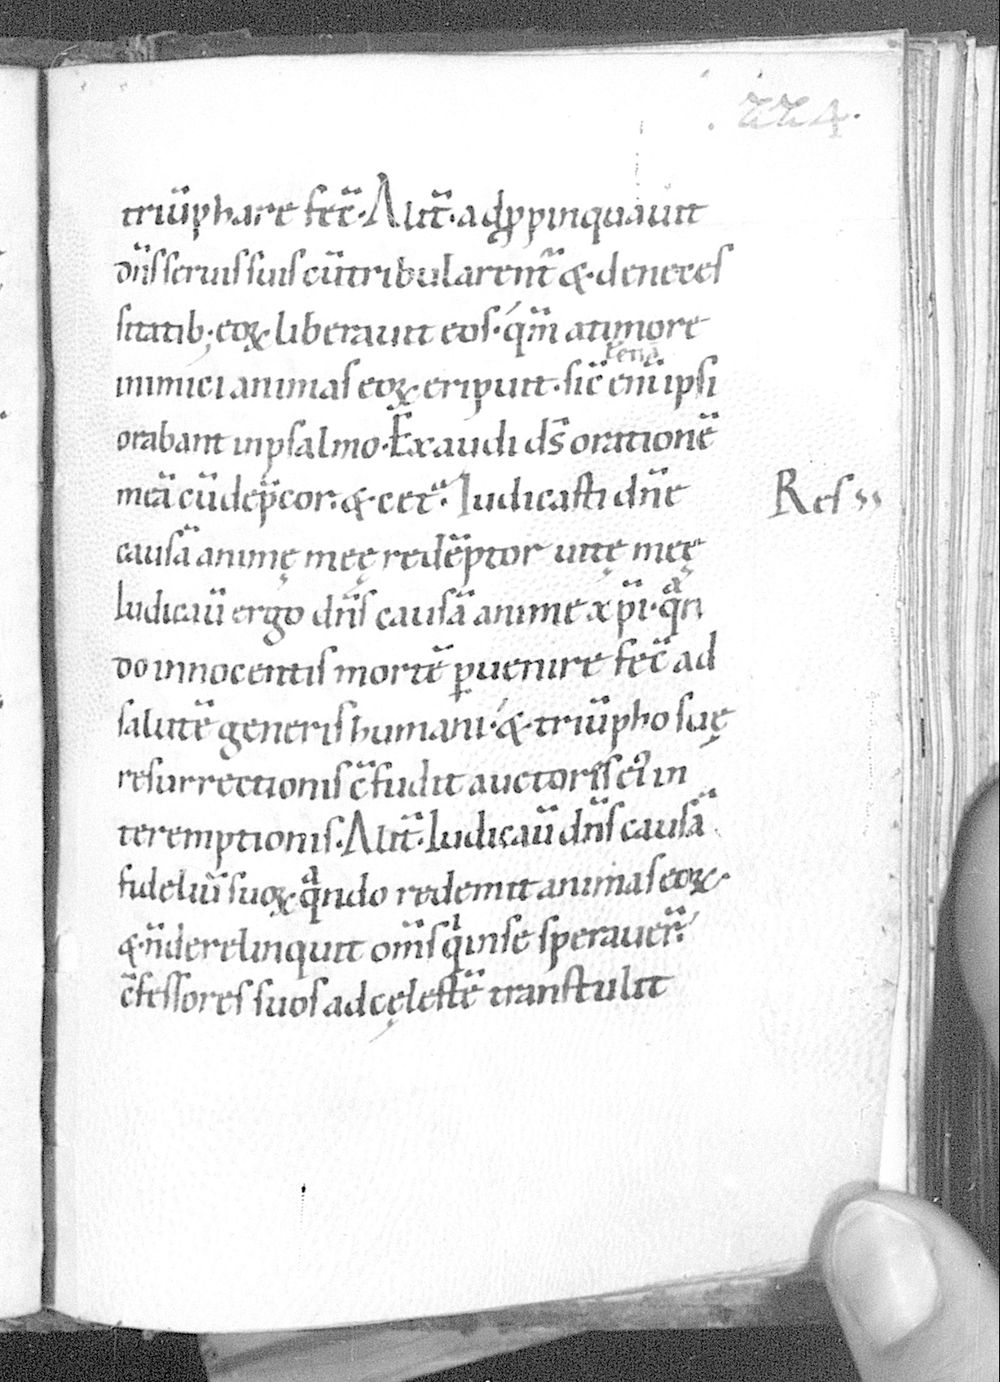 224.
triũphare fec̃. Alit̃. adꝓpinquauit
dñs seruis suis cũ tribularent̃ &. de neces
sitatib; eoꝝ. liberauit eos. qm̃ a timore
inimici animas eoꝝ. eripuit. sic̃ enĩ ipsi
orabant in psalmo. Exaudi ds̃ orationẽ
meã cũ dep̃cor. & cet̃. Iudicasti dñe
Res
causã animę meę redẽptor uitę meę
Iudicaũ ergo dñs causã anime xp̃i. qͣn
do innocentis mortẽ ꝑuenire fec̃ ad
salutẽ generis humani. &. triũpho suę
resurrectionis c̃fudit auctores ei in
teremptionis. Alit̃. Iudicaũ dñs causã
fideliũ suoꝝ. qͣndo redemit animas eoꝝ.
&. ñ derelinquit om̃s qͥ in se sperauer̃.
c̃fessores suos ad cęlestẽ transtulit